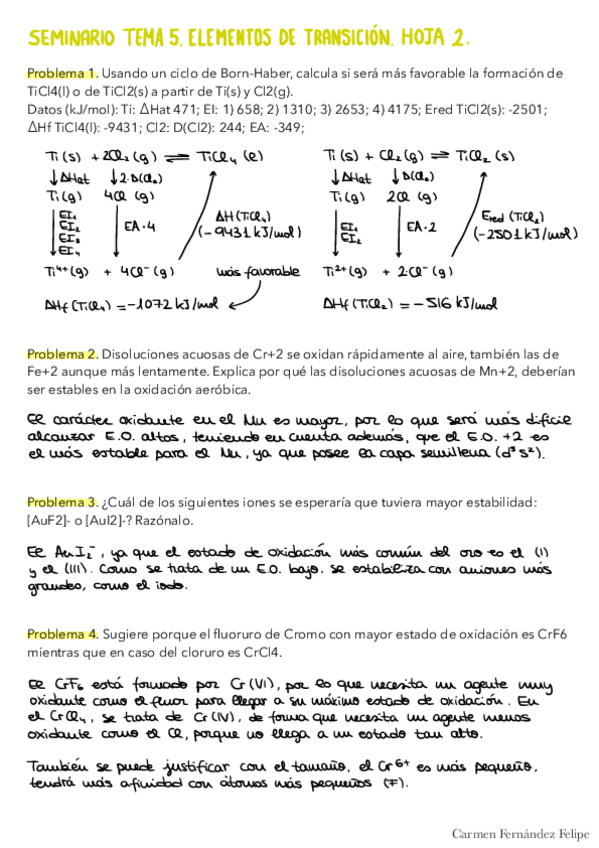 SEMINARIO TEMA 5. ELEMENTOS DE TRANSICIÓN. HOJA 2.
Problema 1. Usando un ciclo de Born-Haber, calcula si será más favorable la formación de
TiCl4(l) o de TiCl2(s) a partir de Ti(s) y Cl2(g).
Datos (kJ/mol): Ti: ΔHat 471; EI: 1) 658; 2) 1310; 3) 2653; 4) 4175; Ered TiCl2(s): -2501;
ΔHf TiCl4(l): -9431; Cl2: D(Cl2): 244; EA: -349;
Ti (s) + 2Cl₂ (g) ⇌ TiCl₄ (l)
↓ΔHat ↓2·D(Cl₂)
Ti(g) 4Cl (g)
EI₁
EI₂
EI₃
EI₄
EA·4
ΔH(TiCl₄)
(-9431 kJ/mol)
Ti⁴⁺(g) + 4Cl⁻ (g)
más favorable
ΔHf (TiCl₄) = -1072 kJ/mol
Ti (s) + Cl₂ (g) ⇌ TiCl₂ (s)
↓ΔHat ↓D(Cl₂)
Ti(g) 2Cl (g)
EI₁
EI₂
EA·2
Ered (TiCl₂)
(-2501 kJ/mol)
Ti²⁺(g) + 2Cl⁻ (g)
ΔHf (TiCl₂) = -516 kJ/mol
Problema 2. Disoluciones acuosas de Cr+2 se oxidan rápidamente al aire, también las de
Fe+2 aunque más lentamente. Explica por qué las disoluciones acuosas de Mn+2, deberían
ser estables en la oxidación aeróbica.
El carácter oxidante en el Mn es mayor, por lo que será más difícil
alcanzar E.O. altos, teniendo en cuenta además, que el E.O. +2 es
el más estable para el Mn, ya que posee la capa semillena (d⁵s²).
Problema 3. ¿Cuál de los siguientes iones se esperaría que tuviera mayor estabilidad:
[AuF2]- o [AuI2]-? Razónalo.
El AuI₂⁻, ya que el estado de oxidación más común del oro es el (I)
y el (III). Como se trata de un E.O. bajo. se estabiliza con aniones más
grandes, como el iodo.
Problema 4. Sugiere porque el fluoruro de Cromo con mayor estado de oxidación es CrF6
mientras que en caso del cloruro es CrCl4.
El CrF₆ está formado por Cr(VI), por lo que necesita un agente muy
oxidante como el fluor para llegar a su máximo estado de oxidación. En
el CrCl₄, se trata de Cr(IV), de forma que necesita un agente menos
oxidante como el Cl, porque no llega a un estado tan alto.
También se puede justificar con el tamaño, el Cr⁶⁺ es más pequeño,
tendrá más afinidad con átomos más pequeños (F).
Carmen Fernández Felipe